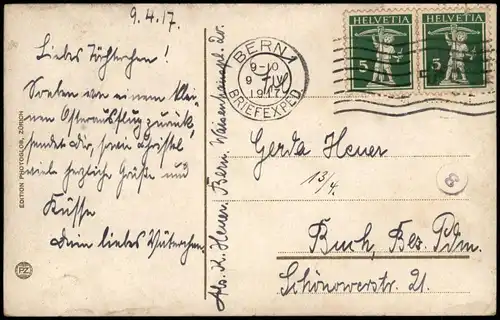 9.4.17.
Liebes Töchterchen!
Soeben von einem klei-
nen Osterausflug zurück,
sendet dir, sowie Christel
viele herzliche Grüße und
Küsse
Dein liebes Väterchen.
EDITION PHOTOGLOB, ZÜRICH
PZ
Abs. K. Heuer, Bern, Waisenhauspl.
BERN 1
9-10
9 IV
1917
BRIEFEXPED.
HELVETIA
5
HELVETIA
5
Gerda Heuer
13/4.
8
Buch, Bez. Pdm.
Schönowerstr. 21.